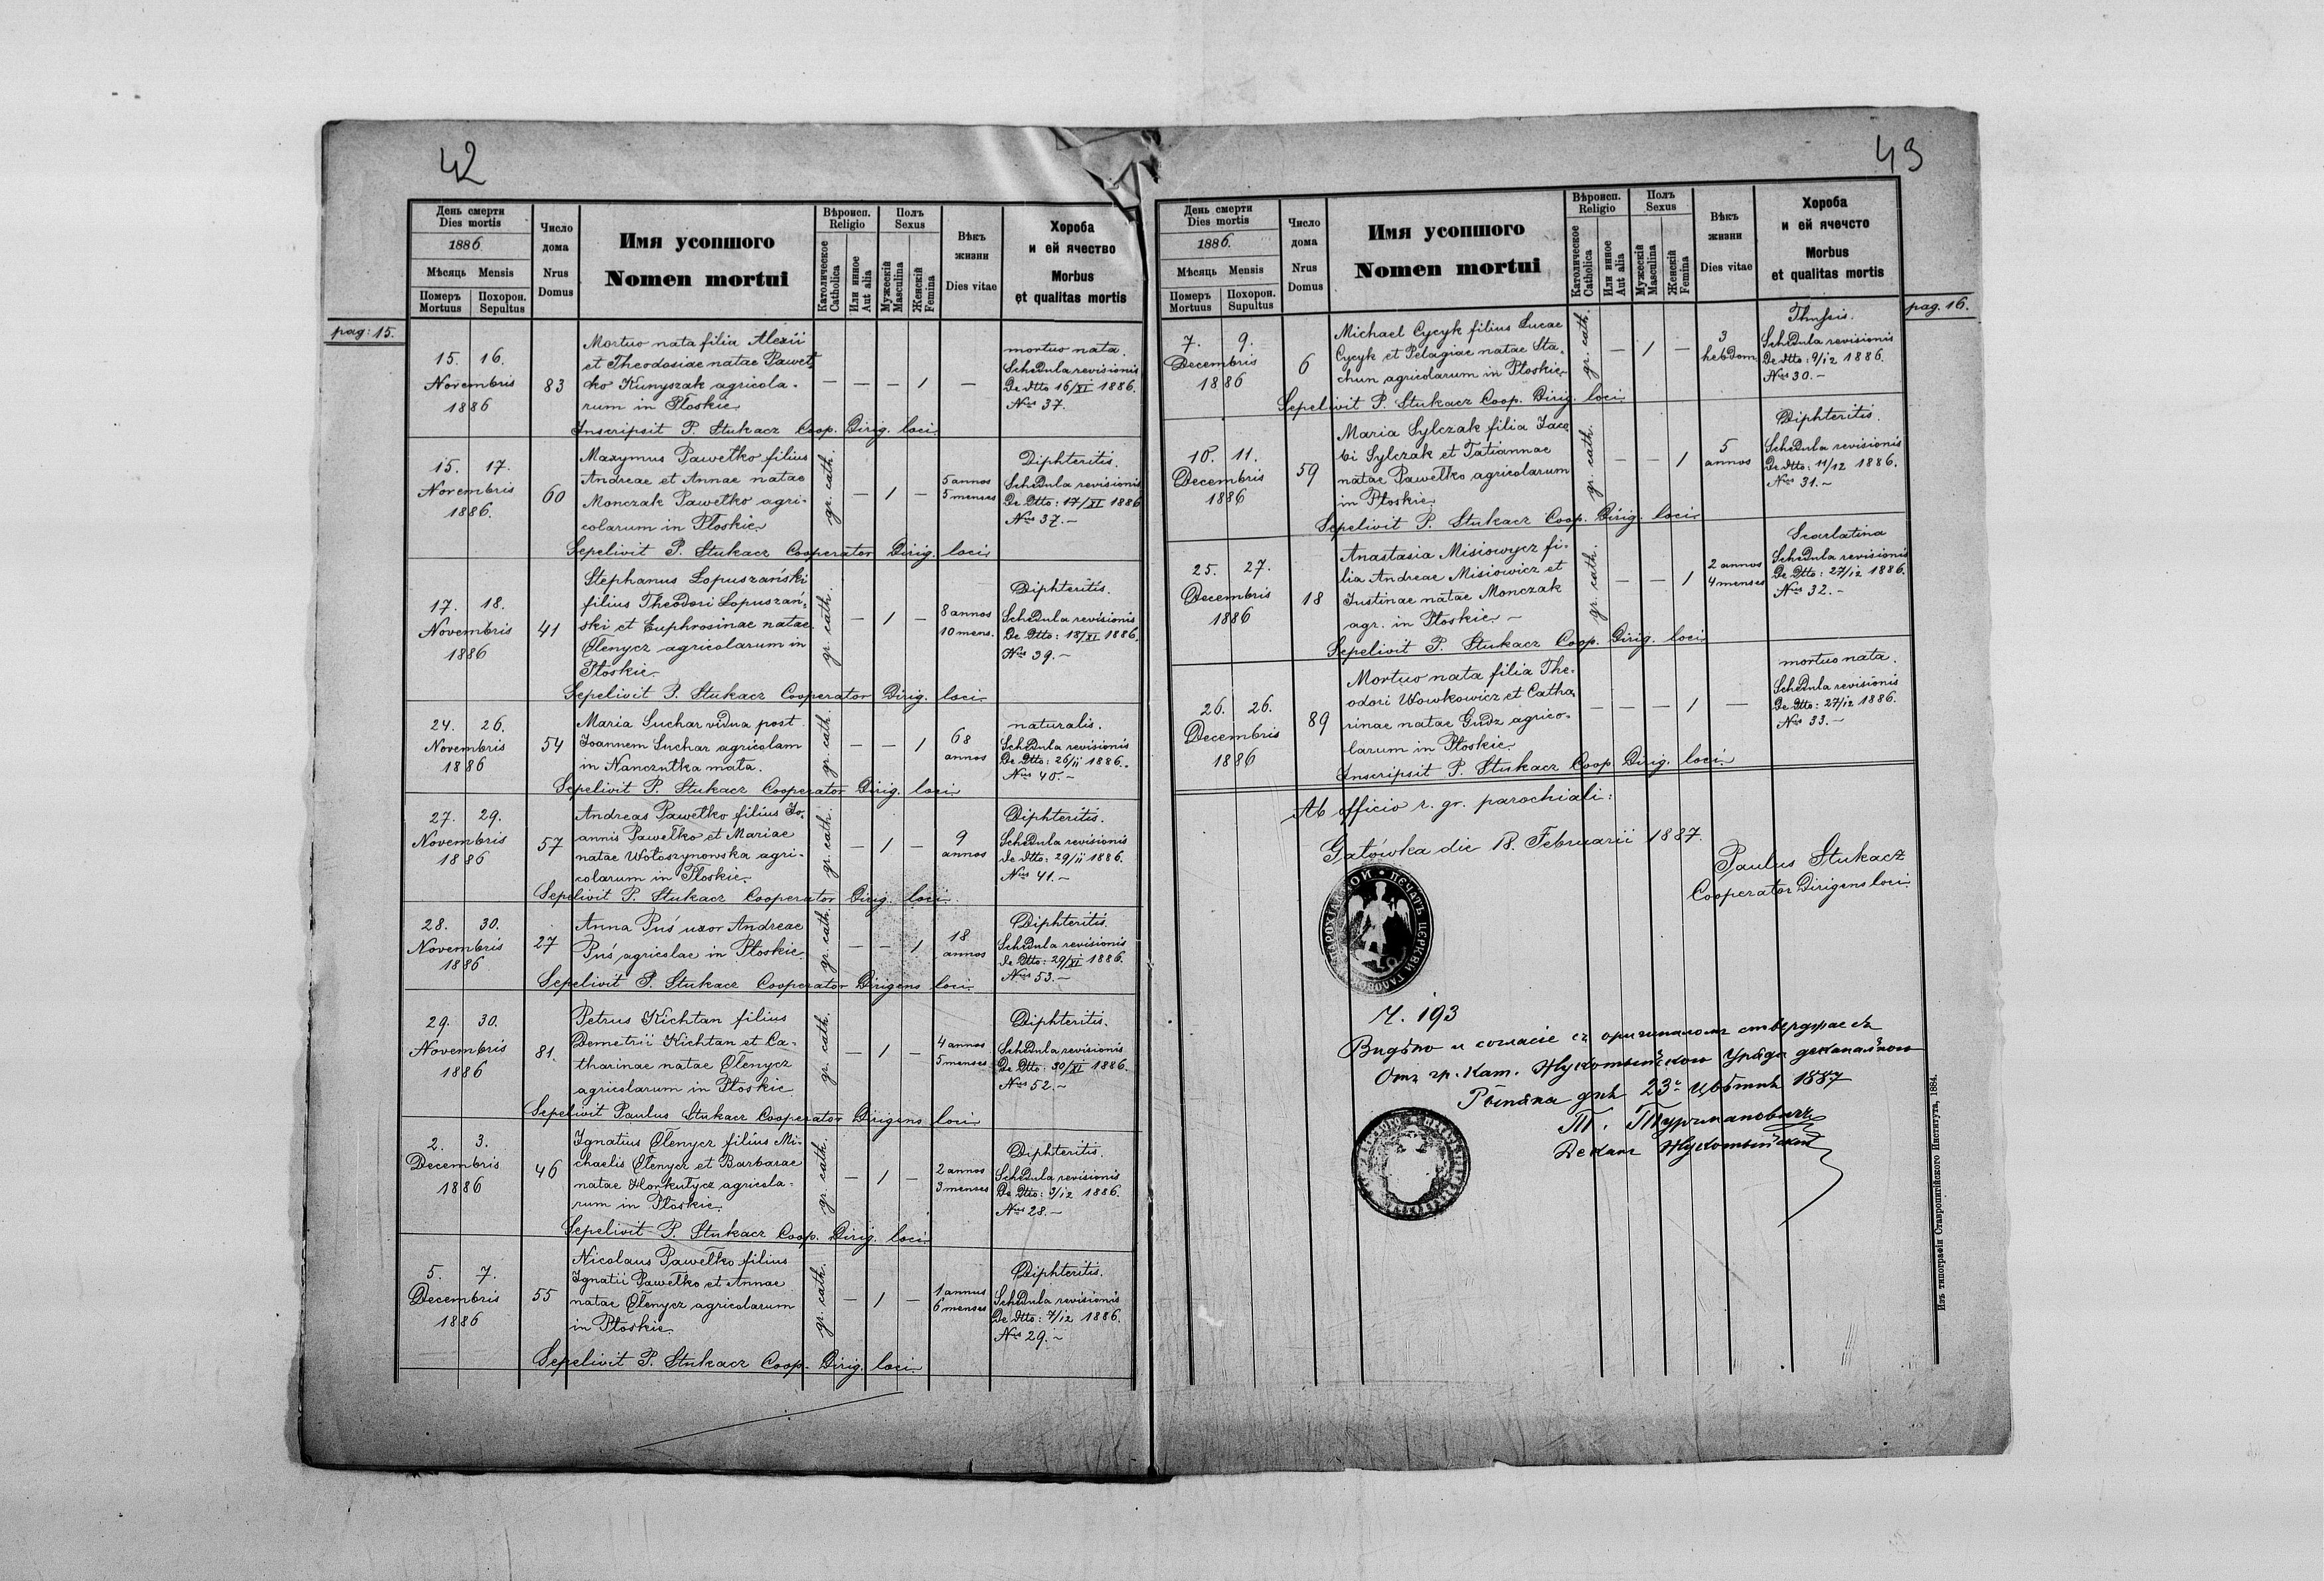 42
День смерти
Dies mortis
1886.
Мѣсяць Mensis
Померъ Похорон.
Mortuus Sepultus
Число
дома
Nrus
Domus
Имя усопшого
Nomen mortui
Вѣроисп.
Religio
Католическое
Catholica
Или инное
Aut alia
Полъ
Sexus
Мужескій
Masculina
Женскій
Femina
Вѣкъ
жизни
Dies vitae
Хороба
и ей ячество
Morbus
et qualitas mortis
pag: 15.
15. 16.
Novembris
1886
83
Mortuo nata filia Alexii
et Theodosiae natae Paweł-
ko Kunyszak agricola-
rum in Płoskie.
— — — 1 —
mortuo nata.
Schedula revisionis
De dtto 16/XI 1886.
Nrus 37.
Inscripsit P. Stukacz Coop. Dirig. loci.
15. 17.
Novembris
1886.
60
Maxymus Pawełko filius
Andreae et Annae natae
Monczak Pawełko agri-
colarum in Płoskie.
gr. cath.
— 1 —
5 annos
5 menses
Diphteritis.
Schedula revisionis
De Dtto: 17/XI 1886
Nrus 37.—
Sepelivit P. Stukacz Cooperator Dirig. loci.
17. 18.
Novembris
1886
41
Stephanus Łopuszański
filius Theodori Łopuszań-
ski et Euphrosinae natae
Ołenycz agricolarum in
Płoskie.
gr. cath.
— 1 —
8 annos
10 mens.
Diphteritis.
Schedula revisionis
De Dtto: 18/XI 1886.
Nrus 39.—
Sepelivit P. Stukacz Cooperator Dirig. loci.
24. 26.
Novembris
1886
54
Maria Suchar vidua post
Joannem Suchar agricolam
in Nanczułka mała.
gr. cath.
— — 1
68
annos
naturalis.
Schedula revisionis
De Dtto: 26/11 1886.
Nrus 40.—
Sepelivit P. Stukacz Cooperator Dirig. loci.
27. 29.
Novembris
1886
57
Andreas Pawełko filius Jo-
annis Pawełko et Mariae
natae Wołoszynowska agri-
colarum in Płoskie.
gr. cath.
— 1 —
9
annos
Diphteritis.
Schedula revisionis
de dtto: 29/11 1886.
Nrus 41.—
Sepelivit P. Stukacz Cooperator Dirig. loci.
28. 30.
Novembris
1886
27
Anna Puś uxor Andreae
Puś agricolae in Płoskie.
gr. cath.
— — 1
18
annos
Diphteritis.
Schedula revisionis
de Dtto: 29/XI 1886.
Nrus 53.—
Sepelivit P. Stukacz Cooperator Dirigens loci.
29. 30.
Novembris
1886
81.
Petrus Kichtan filius
Demetrii Kichtan et Ca-
tharinae natae Ołenycz
agricolarum in Płoskie
gr. cath.
— 1 —
4 annos
5 menses
Diphteritis.
Schedula revisionis
De Dtto: 30/XI 1886.
Nrus 52.—
Sepelivit Paulus Stukacz Cooperator Dirigens loci.
2. 3.
Decembris
1886
46
Ignatius Ołenycz filius Mi-
chaelis Ołenycz et Barbarae
natae Horkułycz agricola-
rum in Płoskie.
gr. cath.
— 1 —
2 annos
3 menses
Diphteritis.
Schedula revisionis
De Dtto: 3/12 1886.
Nrus 28.—
Sepelivit P. Stukacz Coop. Dirig. loci.
5. 7.
Decembris
1886
55
Nicolaus Pawełko filius
Ignatii Pawełko et Annae
natae Ołenycz agricolarum
in Płoskie.
gr. cath.
— 1 —
1 annus
6 menses
Diphteritis.
Schedula revisionis
De dtto: 7/12 1886.
Nrus 29.—
Sepelivit P. Stukacz Coop. Dirig. loci.
43
День смерти
Dies mortis
1886.
Мѣсяць Mensis
Померъ Похорон.
Mortuus Supultus
Число
дома
Nrus
Domus
Имя усопшого
Nomen mortui
Вѣроисп.
Religio
Католическое
Catholica
Или иное
Aut alia
Полъ
Sexus
Мужескій
Masculina
Женскій
Femina
Вѣкъ
жизни
Dies vitae
Хороба
и ей ячечсто
Morbus
et qualitas mortis
pag. 16.
7. 9.
Decembris
1886
6
Michael Cycyk filius Lucae
Cycyk et Pelagiae natae Sta-
chun agricolarum in Płoskie
gr. cath.
— 1 —
3
hebdom.
Thussis.
Schedula revisionis
De dtto: 9/12 1886.
Nrus 30.—
Sepelivit P. Stukacz Coop. Dirig. loci.
10. 11.
Decembris
1886
59
Maria Sylczak filia Jaco-
bi Sylczak et Tatiannae
natae Pawełko agricolarum
in Płoskie.
gr. cath.
— — 1
5
annos
Diphteritis.
Schedula revisionis
De dtto: 11/12 1886.
Nrus 31.—
Sepelivit P. Stukacz Coop. Dirig. loci.
25. 27.
Decembris
1886
18
Anastasia Misiowycz fi-
lia Andreae Misiowicz et
Justinae natae Monczak
agr. in Płoskie.—
gr. cath.
— — 1
2 annos
4 menses
Scarlatina
Schedula revisionis
De Dtto: 27/12 1886.
Nrus 32.—
Sepelivit P. Stukacz Coop. Dirig. loci.
26. 26.
Decembris
1886
89
Mortuo nata filia The-
odori Wowkowicz et Catha-
rinae natae Gudz agrico-
larum in Płoskie.
— — — 1 —
mortuo nata.
Schedula revisionis
De Dtto: 27/12 1886.
Nrus 33.—
Inscripsit P. Stukacz Coop. Dirig. loci.
Ab officio r. gr. parochiali:
Gałówka die 18. Februarii 1887.
Paulus Stukacz
Cooperator Dirigens loci.
ПЕЧАТЬ ЦЕРКВИ
Ч. 193
Видѣно и согласіе съ оригиналомъ ствердфаесь
Отъ гр. кат. Жукотинского Уряда деканального
дня 23 Цвѣтня 1887
Т. Турчмановичъ
Деканъ Жукотинскій
Изъ типографіи Ставропигійского Института, 1884.